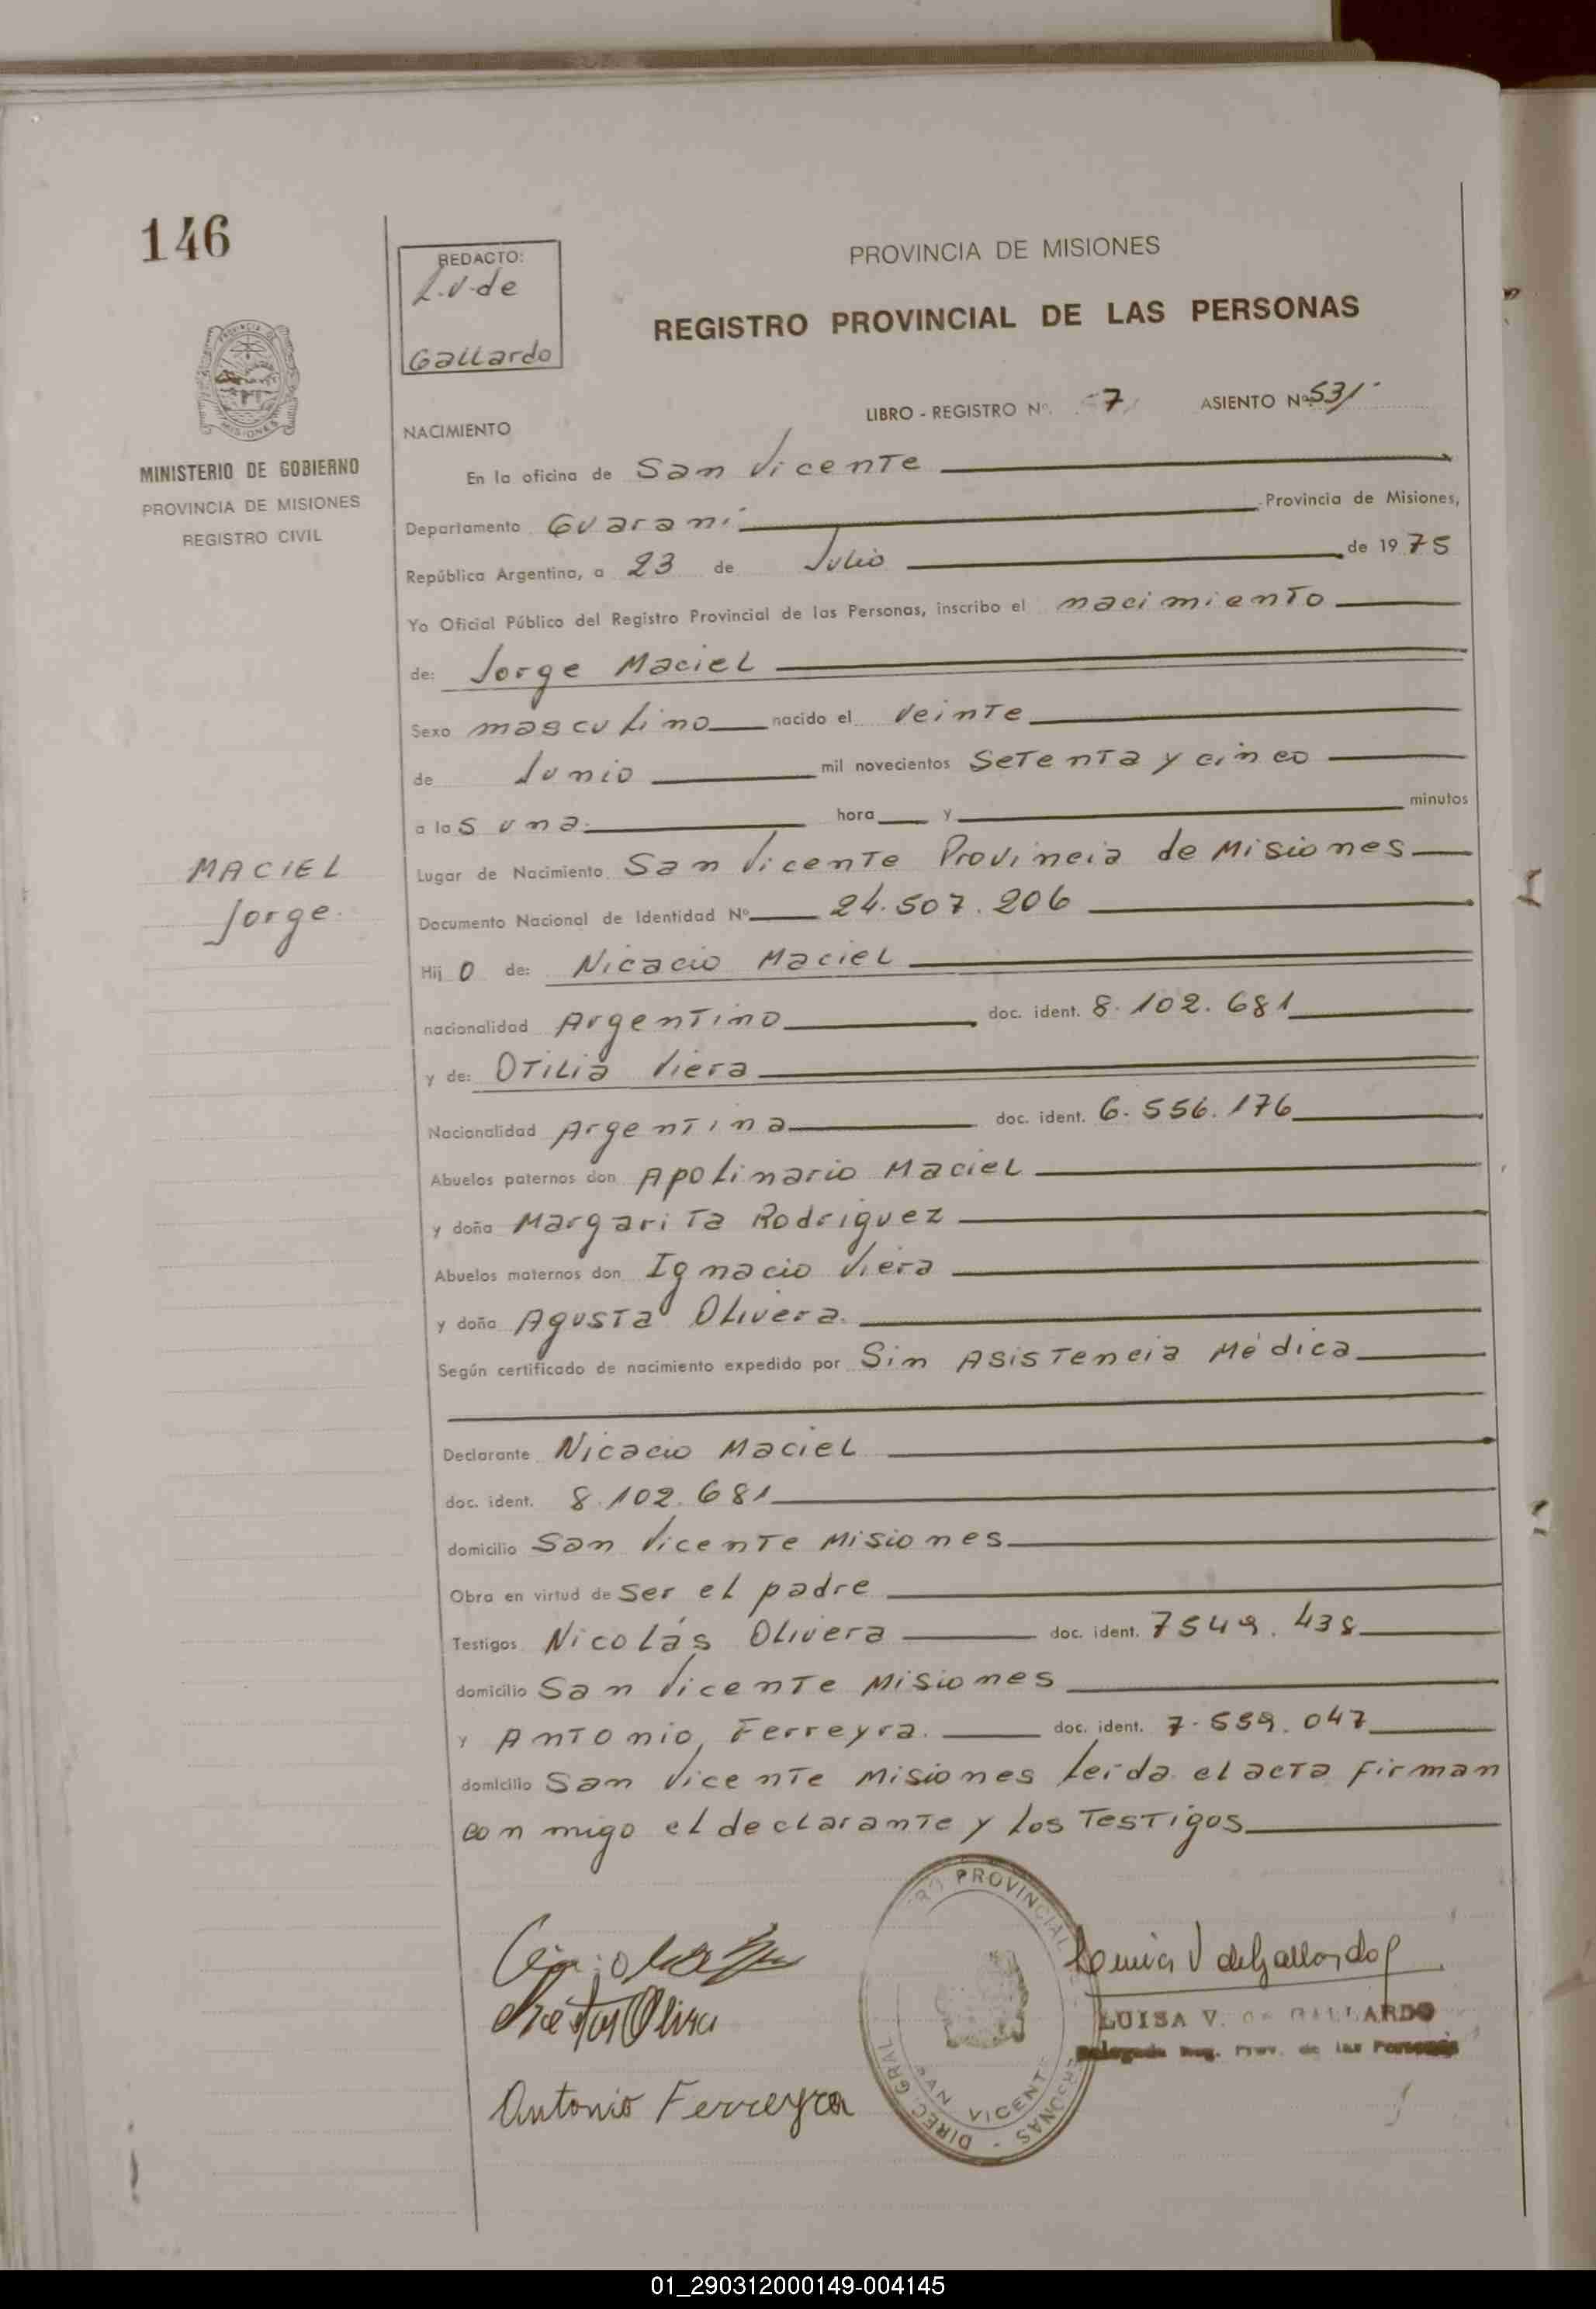 146
REDACTO:
L.V. de
Gallardo
PROVINCIA DE MISIONES
REGISTRO PROVINCIAL DE LAS PERSONAS
MISIONES
MINISTERIO DE GOBIERNO
PROVINCIA DE MISIONES
REGISTRO CIVIL
LIBRO - REGISTRO Nº. 7 ASIENTO Nº 531
NACIMIENTO
En la oficina de San Vicente
Departamento Guaraní Provincia de Misiones,
República Argentina, a 23 de Julio de 1975
Yo Oficial Público del Registro Provincial de las Personas, inscribo el nacimiento
de: Jorge Maciel
Sexo masculino nacido el veinte
de Junio mil novecientos setenta y cinco
a las una. hora y minutos
MACIEL
Jorge.
Lugar de Nacimiento San Vicente Provincia de Misiones
Documento Nacional de Identidad Nº 24.507.206
Hijo de: Nicacio Maciel
nacionalidad Argentino doc. ident. 8.102.681
y de: Otilia Viera
Nacionalidad Argentina doc. ident. 6.556.176
Abuelos paternos don Apolinario Maciel
y doña Margarita Rodriguez
Abuelos maternos don Ignacio Viera
y doña Agusta Olivera.
Según certificado de nacimiento expedido por Sin Asistencia Médica
Declarante Nicacio Maciel
doc. ident. 8.102.681
domicilio San Vicente Misiones
Obra en virtud de ser el padre
Testigos Nicolás Olivera doc. ident. 7549.438
domicilio San Vicente Misiones
y Antonio Ferreyra. doc. ident. 7.559.047
domicilio San Vicente Misiones leida el acta firman
con migo el declarante y los Testigos
PROVINCIAL
DIREC. GRAL
SAN VICENTE
LUISA V. de GALLARDO
Delegada Reg. Prov. de las Personas
Antonio Ferreyra
01_290312000149-004145